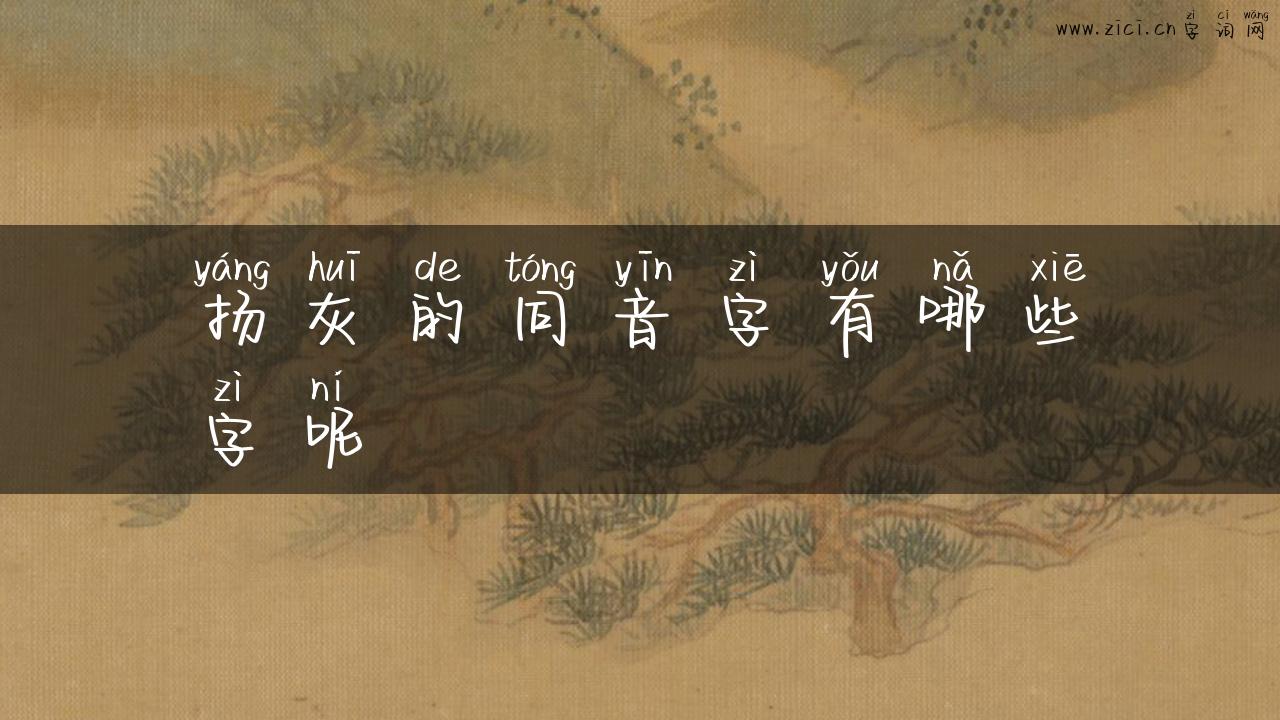 zì cí wǎng
www.zici.cn 字词网
yáng huī de tóng yīn zì yǒu nǎ xiē
扬灰的同音字有哪些
zì ní
字呢